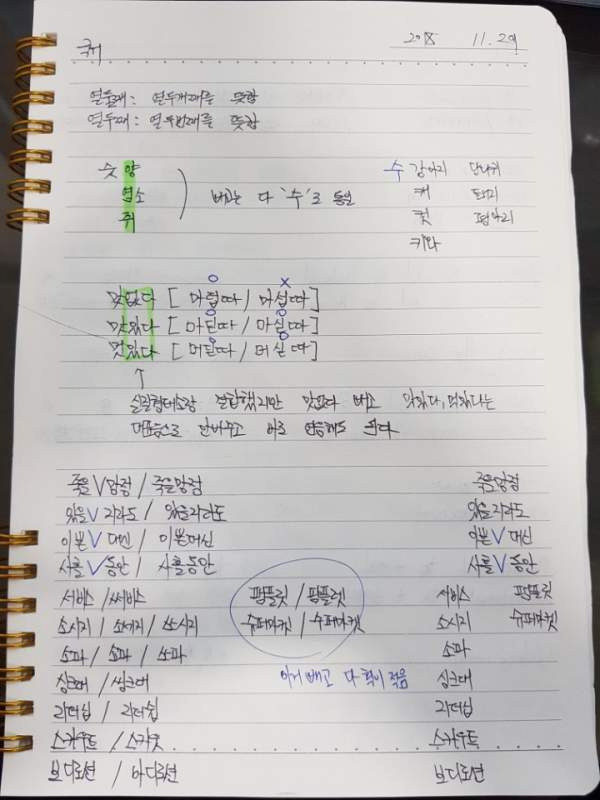 국어 2018 11. 29
열둘째: 열두개째를 뜻함
열두째: 열두번째를 뜻함
숫 양 수 강아지 당나귀
염소 빼고는 다 '수'로 통일 캐 돼지
쥐 컷 평아리
키와
○ ×
맛없다 [ 마덥따 / 마섭따 ]
○ ○
맛있다 [ 마딛따 / 마싣따 ]
○ ○
멋있다 [ 머딛따 / 머싣따 ]
↑
실질형태소랑 결합했지만 맛없다 빼고 맛있다, 멋있다는
대표음으로 안바꾸고 바로 연음해도 된다
죽을V망정 / 죽을망정 죽을망정
있을V지라도 / 있을지라도 있을지라도
이분V대신 / 이분대신 이분V대신
사흘V동안 / 사흘동안 사흘V동안
서비스 / 써비스 팜플릿 / 팜플렛 서비스 팜플릿
소시지 / 소세지 / 쏘시지 슈퍼마켓 / 수퍼마켓 소시지 슈퍼마켓
소파 / 쇼파 / 쏘파 소파
싱크대 / 씽크대 이거 빼고 다 획이 적음 싱크대
리더십 / 리더쉽 리더십
스카우트 / 스카웃 스카우트
보디로션 / 바디로션 보디로션